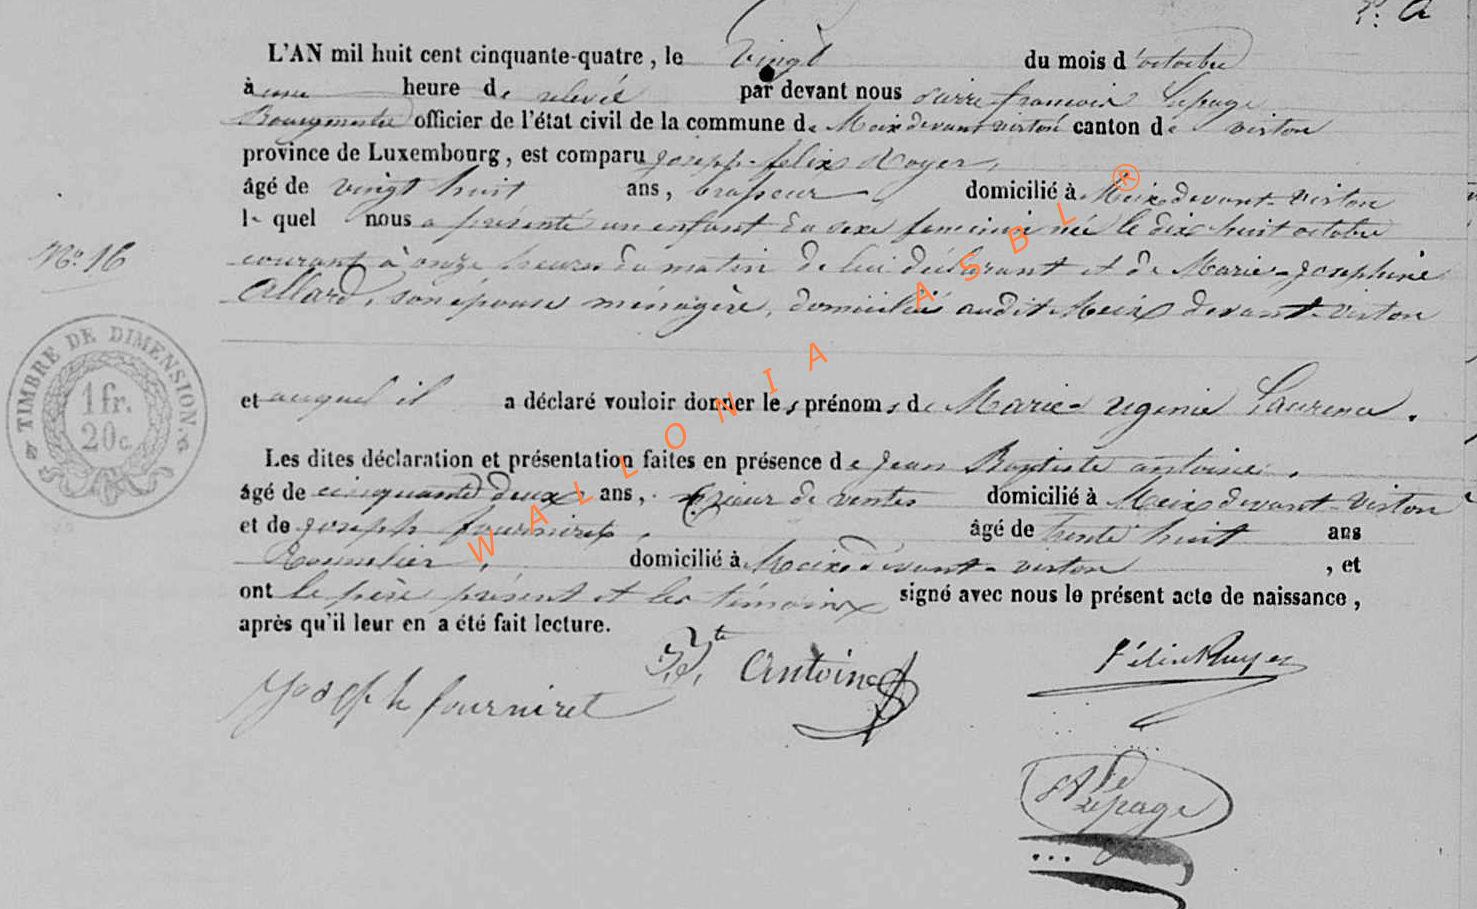 L'AN mil huit cent cinquante-quatre, le Vingt du mois d'octobre
à une heure de relevée par devant nous pierre françois Lepage
Bourgmestre officier de l'état civil de la commune de Meix devant virton canton de virton
province de Luxembourg, est comparu joseph-felix Royer,
âgé de vingt huit ans, brasseur domicilié à Meix devant-Virton
le quel nous a présenté un enfant du sexe feminin née le dix huit octobre
N° 16
courant à onze heures du matin de lui déclarant et de Marie-Josephine
Allard, son épouse ménagère, domiciliés audit Meix devant-virton
TIMBRE DE DIMENSION.
1 fr.
20c.
et auquel il a déclaré vouloir donner les prénoms de Marie ugenie Laurence.
Les dites déclaration et présentation faites en présence de jean Baptiste antoine,
âgé de cinquante deux ans, crieur de ventes domicilié à Meix devant-Virton
et de joseph fourniret, âgé de trente huit ans
domicilié à Meix devant-virton, et
ont le père présent et les témoins signé avec nous le présent acte de naissance,
après qu'il leur en a été fait lecture.
Joseph fourniret
J.Bte Antoine
félix Royer
lepage
WALLONIA ASBL ®